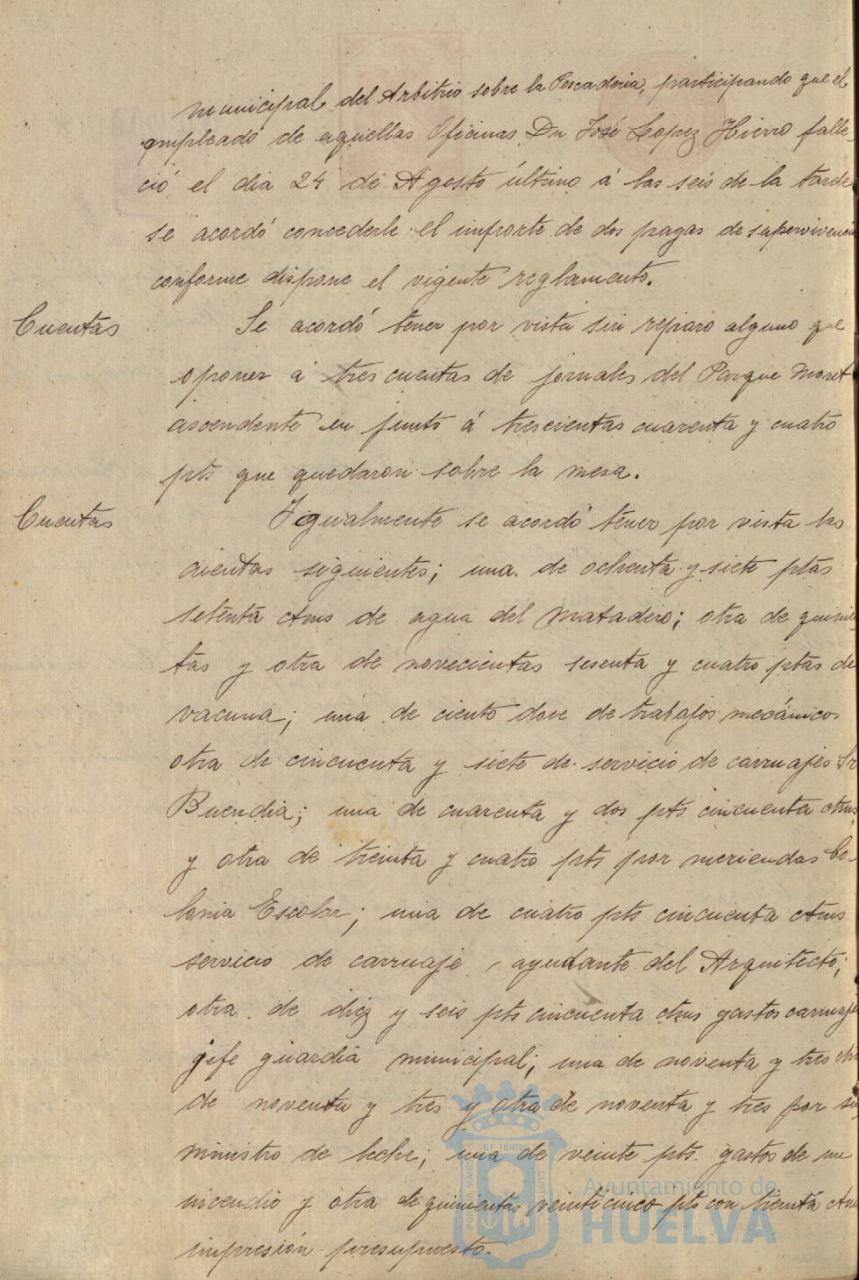 municipal del Arbitrio sobre la Pescaderia, participando que el
empleado de aquellas Oficinas Dn José Lopez Hierro falle-
ció el dia 24 de Agosto último á las seis de la tarde
se acordó concederle el importe de dos pagas de supervivencia
conforme dispone el vigente reglamento.
Cuentas Se acordó tener por vista sin reparo alguno que
oponer á tres cuentas de jornales del Parque Moret
ascendente en junto á trescientas cuarenta y cuatro
pts que quedaron sobre la mesa.
Cuentas Igualmente se acordó tener por vista las
cuentas siguientes; una de ochenta y siete ptas
setenta ctms de agua del Matadero; otra de quinien
tas y otra de novecientas sesenta y cuatro ptas de
vacuna; una de ciento doce de trabajos mecánicos
otra de cincuenta y siete de servicio de carruajes Sr
Buendia; una de cuarenta y dos pts cincuenta ctms
y otra de treinta y cuatro pts por meriendas Co-
lonia Escolar; una de cuatro pts cincuenta ctms
servicio de carruaje, ayudante del Arquitecto;
otra de diez y seis pts cincuenta ctms gastos carruaje
jefe guardia municipal; una de noventa y tres otra
de noventa y tres y otra de noventa y tres por su
ministro de leche; una de veinte pts. gastos de un
incendio y otra de quinientas veinticinco pts con treinta ctms
impresión presupuesto.
Ayuntamiento de
HUELVA